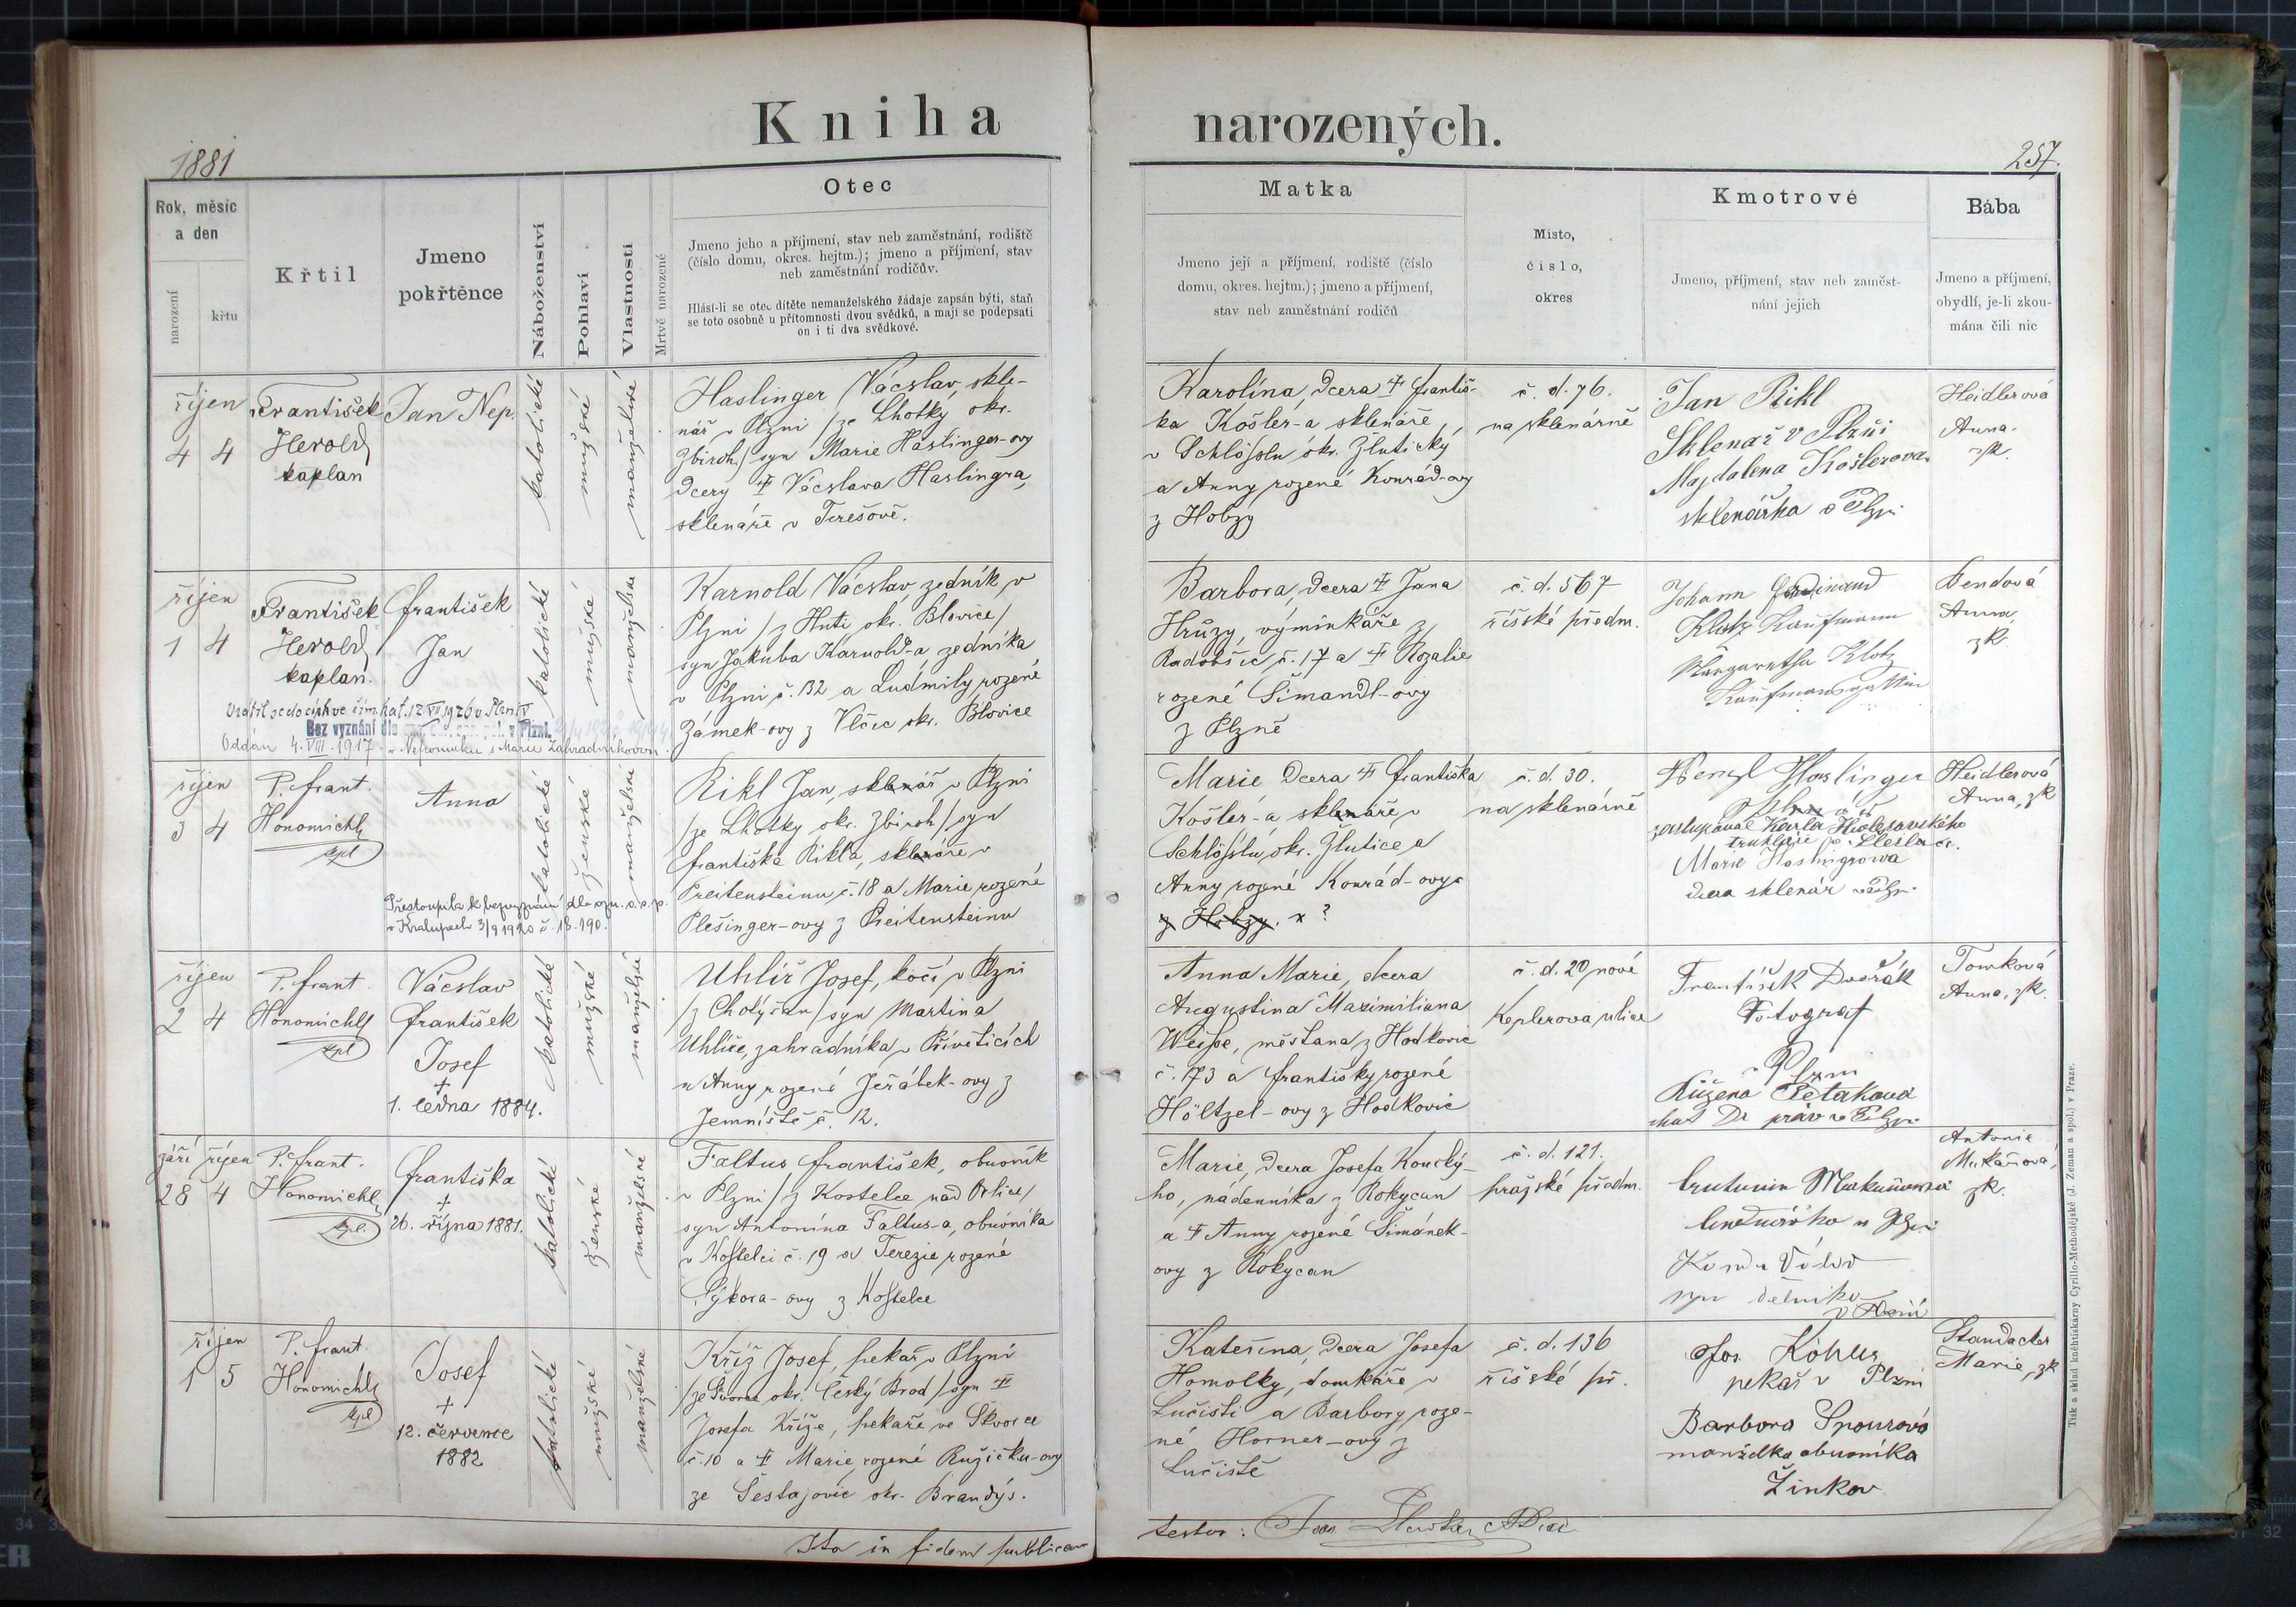 Kniha narozených.
1881
257.
Rok, měsíc
a den
narození
křtu
Křtil
Jmeno
pokřtěnce
Náboženství
Pohlaví
Vlastnosti
Mrtvě narozené
Otec
Jmeno jeho a příjmení, stav neb zaměstnání, rodiště
(číslo domu, okres. hejtm.); jmeno a příjmení, stav
neb zaměstnání rodičův.
Hlásí-li se otec dítěte nemanželského žádaje zapsán býti, staň
se toto osobně u přítomnosti dvou svědků, a mají se podepsati
on i ti dva svědkové.
Matka
Jmeno její a příjmení, rodiště (číslo
domu, okres. hejtm.); jmeno a příjmení,
stav neb zaměstnání rodičů
Místo,
číslo,
okres
Kmotrové
Jmeno, příjmení, stav neb zaměst-
nání jejich
Bába
Jmeno a příjmení,
obydlí, je-li zkou-
mána čili nic
říjen
4 4
František
Herold
kaplan
Jan Nep.
katolické
mužské
manželské
Haslinger Václav, skle-
nář v Plzni /ze Lhotky okr.
Zbiroh/ syn Marie Haslinger-ovy
dcery † Václava Haslingra,
sklenáře v Terešově.
Karolína, dcera † Františ-
ka Košler-a sklenáře
v Schlößlu okr. Žlutický
a Anny rozené Konrád-ovy
z Hobzy
č. d. 76.
na sklenárně
Jan Rikl
Sklenař v Plzňi
Magdalena Košlerova
sklenářka v Plzni
Heidlerová
Anna.
zk.
říjen
1 4
František
Herold
kaplan.
František
Jan
katolické
mužské
manželské
Vrátil se do církve řím. kat. 12. VII 1926 v Plzni IV
Bez vyznání dle v Plzni.
Oddán 4. VIII. 1917 v Nepomuku s Marií Zahradníkovou
Karnold Václav, zedník v
Plzni /z Huti okr. Blovice/
syn Jakuba Karnold-a zedníka
v Plzni č. 132 a Ludmily rozené
Zámek-ovy z Vlčic okr. Blovice
Barbora, dcera † Jana
Hrůzy, výminkáře z
Radobčic č. 17 a † Rozalie
rozené Šimandl-ovy
z Plzně
č. d. 567
říšské předm.
Johann Ferdinand
Klotz Kaufmann
Margaretha Klotz
Kaufmannsgattin
Bendová
Anna,
zk.
říjen
3 4
P. Frant.
Honomichl
kpl
Anna
katolické
ženské
manželské
Přestoupila k bezvyznání dle ozn. o. s. p.
v Kralupech 3/9 1920 č. 18.190.
Rikl Jan, sklenář v Plzni
/ze Lhotky okr. Zbiroh/ syn
Františka Rikla, sklenáře v
Preitensteinu č. 18 a Marie rozené
Plešinger-ovy z Preitensteinu
Marie dcera † Františka
Košler-a sklenáře, v
Schlößlu, okr. Žlutice a
Anny rozené Konrád-ovy
z Hobzy. x ?
č. d. 30.
na sklenárně
Wenzl Haslinger
zastupoval Karla Holešovského
truhláře
Marie Haslingrowa
dcera sklenár v Plzni
Heidlerová
Anna, zk
říjen
2 4
P. Frant.
Honomichl
kpl
Václav
František
Josef
+
1. ledna 1884.
katolické
mužské
manželské
Uhlíř Josef, kočí v Plzni
/z Chotýšan/ syn Martina
Uhlíře, zahradníka v Přívěticích
a Anny rozené Jeřábek-ovy z
Jemniště č. 12.
Anna Marie, dcera
Augustina Maximiliana
Weiße, měšťana z Hodkovic
č. 173 a Františky rozené
Höltzel-ovy z Hodkovic
č. d. 20 nové
Keplerova ulice
František Dvořák
Fotograf
v Plzni
Růžena Peťáková
choť Dr práv v Plzni
Tomková
Anna, zk.
září říjen
28 4
P. Frant.
Honomichl
kpl.
Františka
+
26. října 1881.
katolické
ženské
manželské
Faltus František, obuvník
v Plzni /z Kostelce nad Orlicí/
syn Antonína Faltus-a, obuvníka
v Kostelci č. 19 a Terezie rozené
Sýkora-ovy z Kostelce
Marie, dcera Josefa Koucký-
ho, nádenníka z Rokycan
a † Anny rozené Šimánek-
ovy z Rokycan
č. d. 121.
pražské předm.
syn dělníka
v Plzni
Antonie
zk.
říjen
1 5
P. Frant.
Honomichl
kpl
Josef
+
12. července
1882
katolické
mužské
manželské
Kříž Josef, pekař v Plzni
/ze Škvorce okr. Český Brod/ syn †
Josefa Kříže, pekaře ve Škvorci
č. 10 a † Marie rozené Ružičku-ovy
ze Šestajovic okr. Brandýs.
Kateřina, dcera Josefa
Homolky, domkáře v
Lučišti a Barbory roze-
né Horner-ovy z
Lučiště
č. d. 136
říšské př.
Jos. Köhler
pekař v Plzni
Barbora Spourová
manželka obuvníka
Žinkov
Standacher
Marie, zk
Ita in fidem publicam
testor:
Tisk a sklad knihtiskárny Cyrillo-Methodějské (J. Zeman a spol.) v Praze.